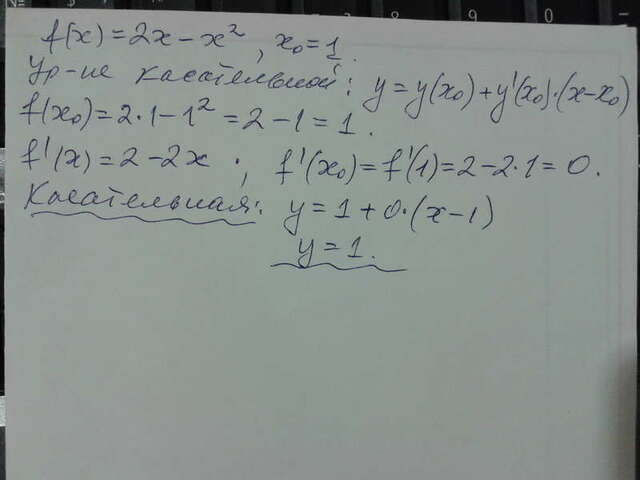 f(x) = 2x - x², x₀ = 1.
Ур-ие касательной: y = y(x₀) + y'(x₀)·(x - x₀)
f(x₀) = 2·1 - 1² = 2 - 1 = 1.
f'(x) = 2 - 2x ; f'(x₀) = f'(1) = 2 - 2·1 = 0.
Касательная: y = 1 + 0·(x - 1)
y = 1.